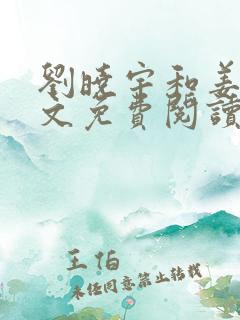 劉曉宇和姜
文免費閱讀
王伯
未經同意禁止轉載